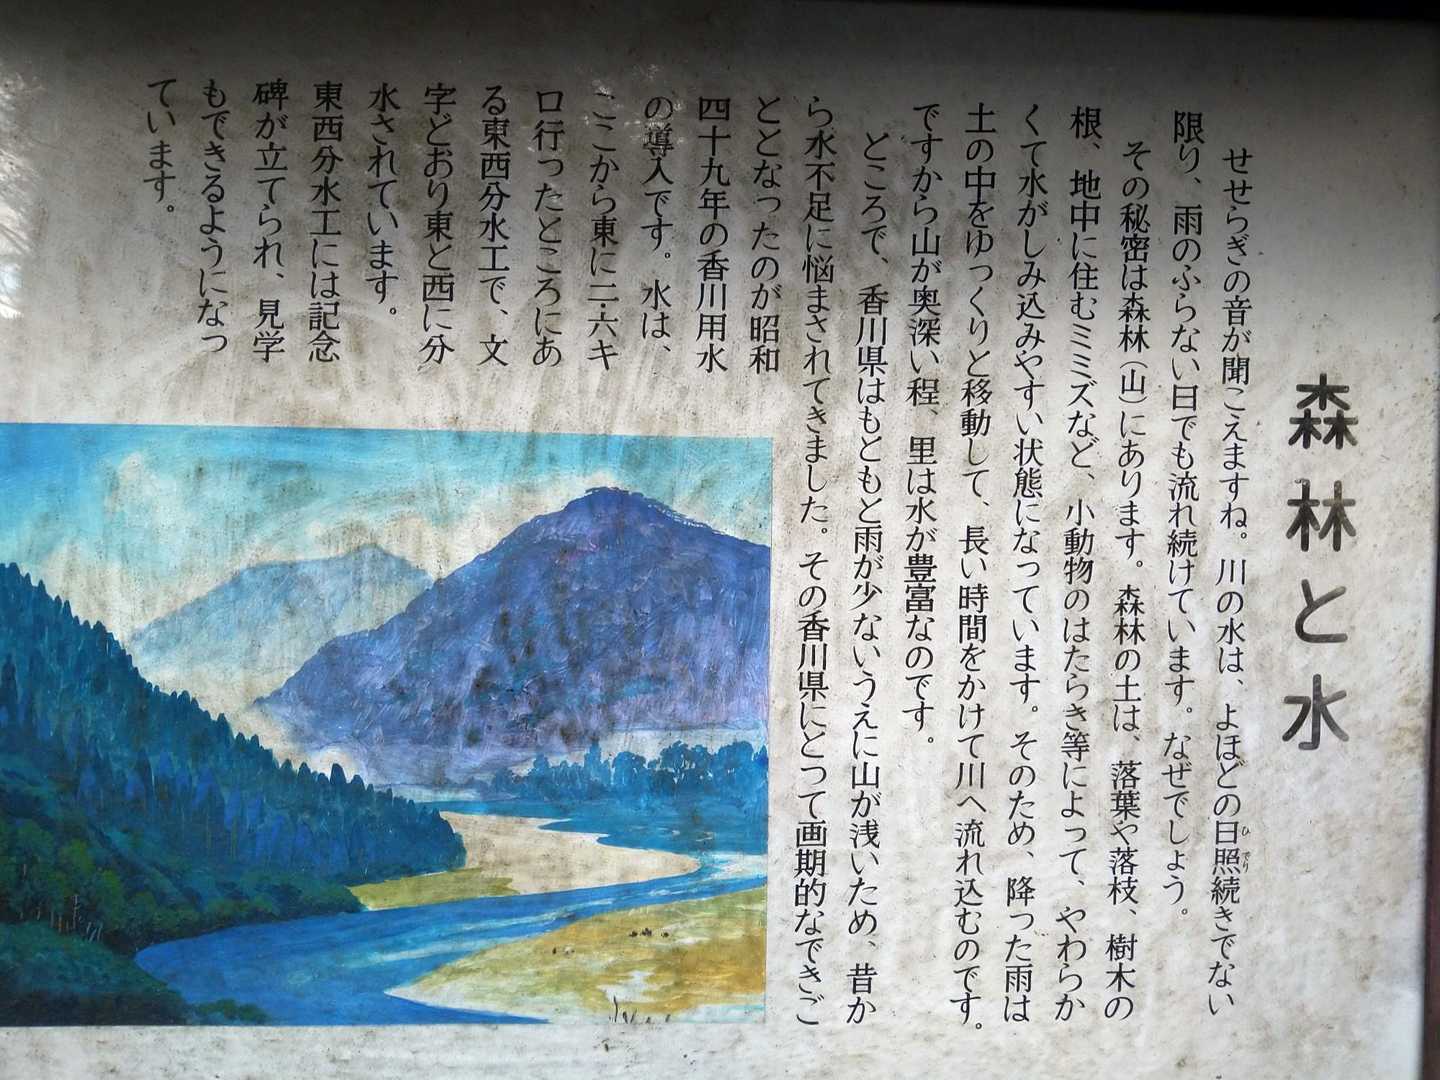 森林と水
せせらぎの音が聞こえますね。川の水は、よほどの日照続きでない
ひでり
限り、雨のふらない日でも流れ続けています。なぜでしょう。
その秘密は森林(山)にあります。森林の土は、落葉や落枝、樹木の
根、地中に住むミミズなど、小動物のはたらき等によって、やわらか
くて水がしみ込みやすい状態になっています。そのため、降った雨は
土の中をゆっくりと移動して、長い時間をかけて川へ流れ込むのです。
ですから山が奥深い程、里は水が豊富なのです。
ところで、香川県はもともと雨が少ないうえに山が浅いため、昔か
ら水不足に悩まされてきました。その香川県にとって画期的なできご
ととなったのが昭和
四十九年の香川用水
の導入です。水は、
ここから東に二・六キ
ロ行ったところにあ
る東西分水工で、文
字どおり東と西に分
水されています。
東西分水工には記念
碑が立てられ、見学
もできるようになっ
ています。